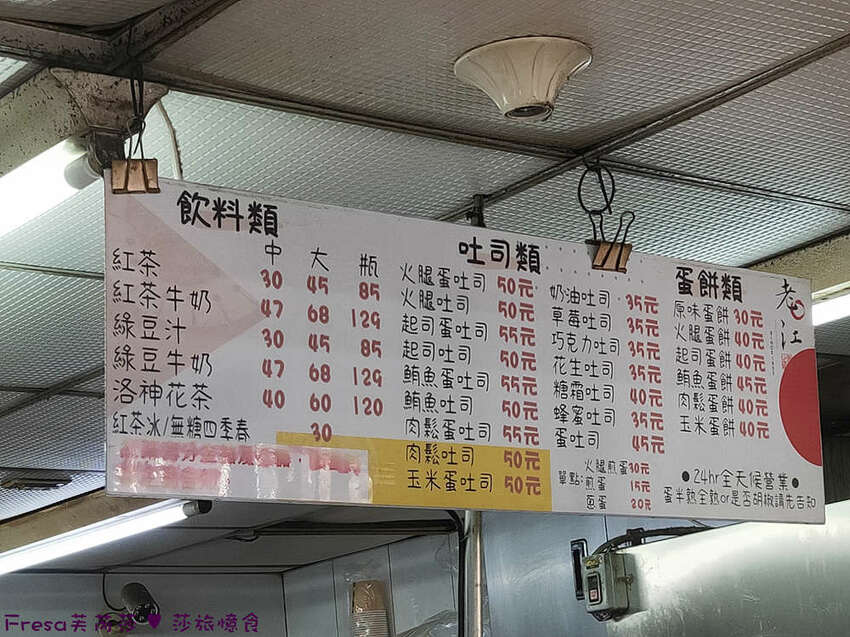 飲料類
中 大 瓶
紅茶 30 45 85
紅茶牛奶 47 68 129
綠豆汁 30 45 85
綠豆牛奶 47 68 129
洛神花茶 40 60 120
紅茶冰/無糖四季春 30
吐司類
火腿蛋吐司 50元
火腿吐司 50元
起司蛋吐司 55元
起司吐司 50元
鮪魚蛋吐司 55元
鮪魚吐司 50元
肉鬆蛋吐司 55元
肉鬆吐司 50元
玉米蛋吐司 50元
奶油吐司 35元
草莓吐司 35元
巧克力吐司 35元
花生吐司 35元
糖霜吐司 40元
蜂蜜吐司 35元
蛋吐司 45元
火腿煎蛋30元
單點:煎蛋 15元
荷蛋 20元
蛋餅類
原味蛋餅 30元
火腿蛋餅 40元
起司蛋餅 40元
鮪魚蛋餅 45元
肉鬆蛋餅 40元
玉米蛋餅 40元
老江
●24hr全天候營業●
蛋半熟全熟or是否胡椒請先告知
Fresa芙 莎 ♥ 莎旅憶食